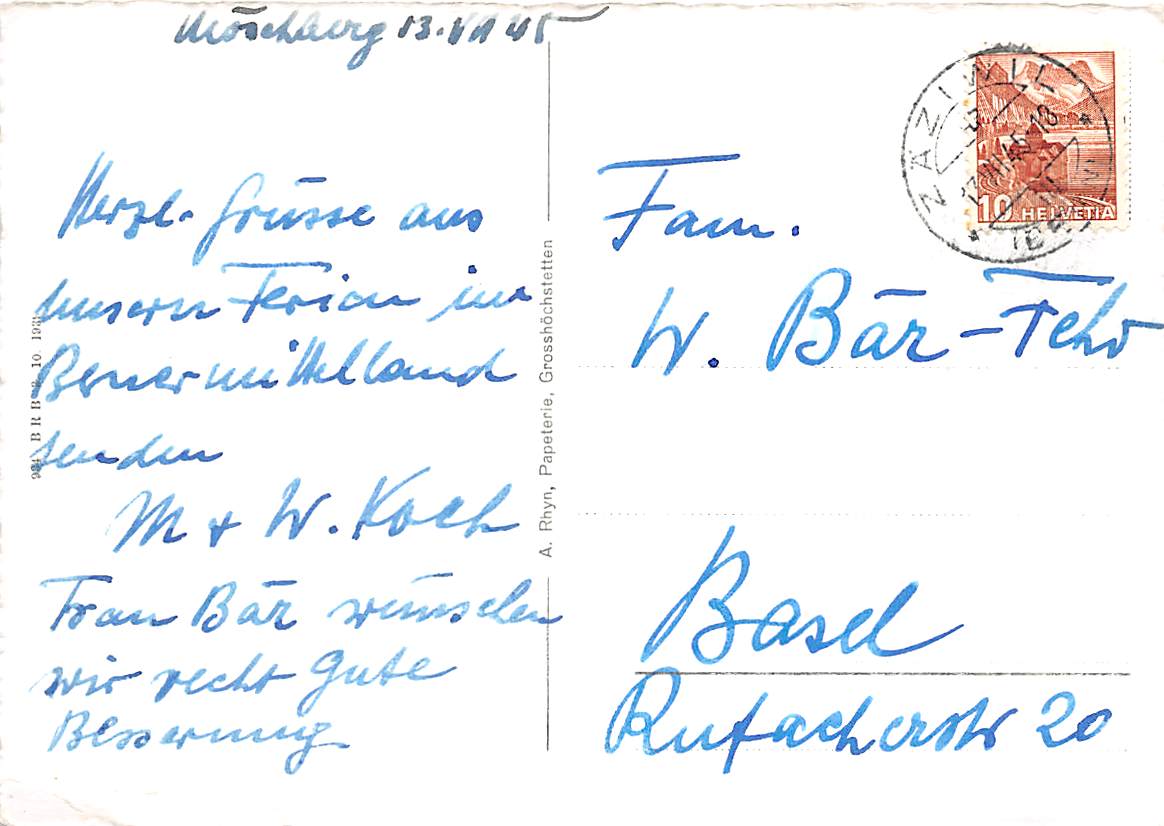 Möschberg 13.VII 45
Herzl. Grüsse aus
unsern Ferien im
Berner mittelland
senden
M + W. Koch
Frau Bär wünschen
wir recht gute
Besserung
A. Rhyn, Papeterie, Grosshöchstetten
ZÄZIWIL
(BERN)
13.VII.45-18
10 HELVETIA
Fam.
W. Bär-Fehr
Basel
Rufacherstr 20